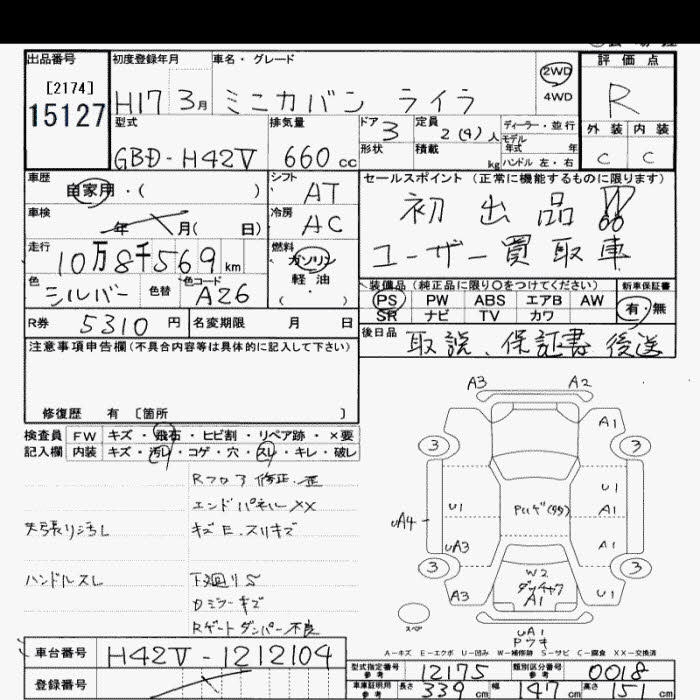 出品番号 初度登録年月 車名・グレード 2WD 4WD 評価点
[2174]
15127
H17 3月 ミニカバン ライラ R
型式 排気量 ドア 3 定員 2(4)人 ディーラー・並行
モデル年式 年 外装 内装
形状 積載 kg ハンドル 左・右
GBD-H42V 660cc C C
車歴 自家用・( ) シフト AT
セールスポイント(正常に機能するものに限ります)
車検 年 月( 日) 冷房 AC
初出品!!
走行 10万8千569km 燃料 ガソリン 軽油 ( ・ )
ユーザー買取車
色 シルバー 色替 色コード A26
装備品(純正品に限り○をつけてください) 新車保証書
PS PW ABS エアB AW 有・無
SR ナビ TV カワ
R券 5310円 名変期限 月 日
後日品 取説、保証書 後送
注意事項申告欄(不具合内容等は具体的に記入して下さい)
修復歴 有 [箇所 ]
検査員 FW キズ・飛石・ヒビ割・リペア跡・×要
記入欄 内装 キズ・汚レ・コゲ・穴・スレ・キレ・破レ
Rフロア修正、歪
エンドパネルXX
天張り汚レ キズE、スリキズ
ハンドルスレ 下廻りS
Dミラーキズ
Rゲートダンパー不良
A3 A2
A1
3 3
U1 U1
Pいげ(タタ) A1
UA4
UA3 A1
3 3
W2
A1
A3 U1
スペア
UA1
Pウキ
A-キズ E-エクボ U-凹み W-補修跡 S-サビ C-腐食 XX-交換済
車台番号 H42V-1212104
型式指定番号 参考 12175 類別区分番号 参考 0018
登録番号 参考
車庫証明用 参考 長さ 339cm 幅 147cm 高さ 151cm